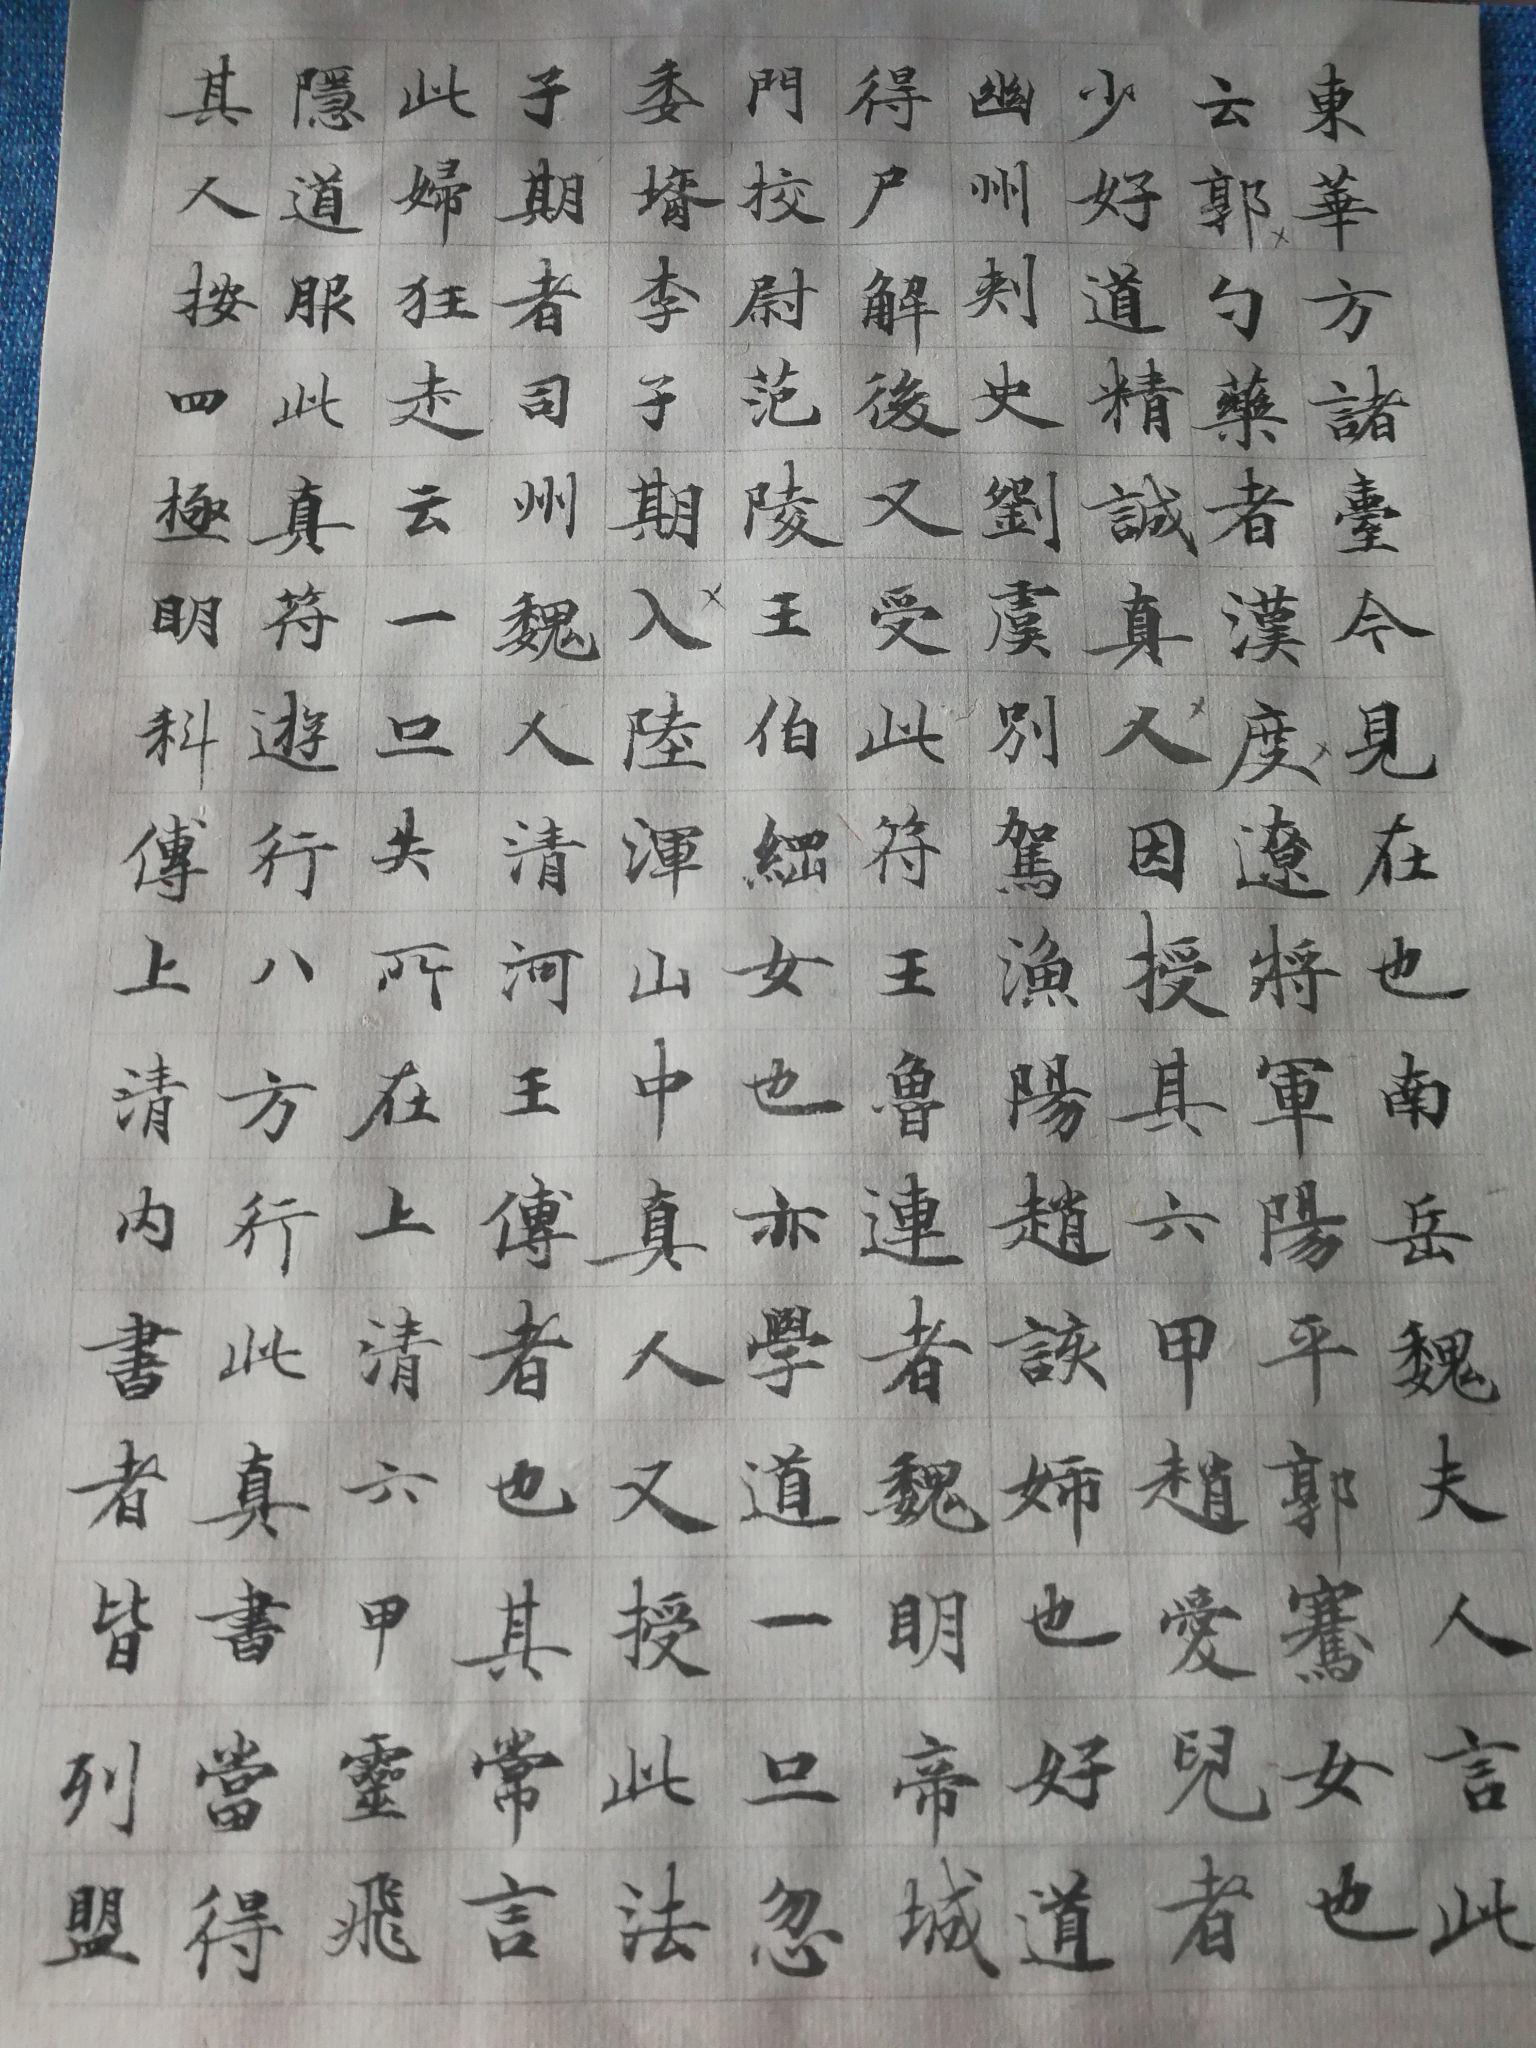 東華方諸臺今見在也南岳魏夫人言此
云郭勺藥者漢度遼將軍陽平郭騫女也
少好道精誠真人因授其六甲趙愛兒者
幽州刾史劉虞別駕漁陽趙該姊也好道
得尸解後又受此符王魯連者魏明帝城
門挍尉范陵王伯綱女也亦學道一旦忽
委壻李子期入陸渾山中真人又授此法
子期者司州魏人清河王傅者也其常言
此婦狂走云一旦失所在上清六甲靈飛
隱道服此真符遊行八方行此真書當得
其人按四極明科傳上清内書者皆列盟